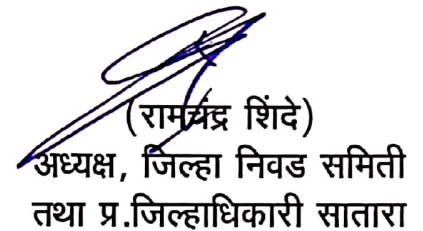 (रामचंद्र शिंदे)
अध्यक्ष, जिल्हा निवड समिती
तथा प्र.जिल्हाधिकारी सातारा